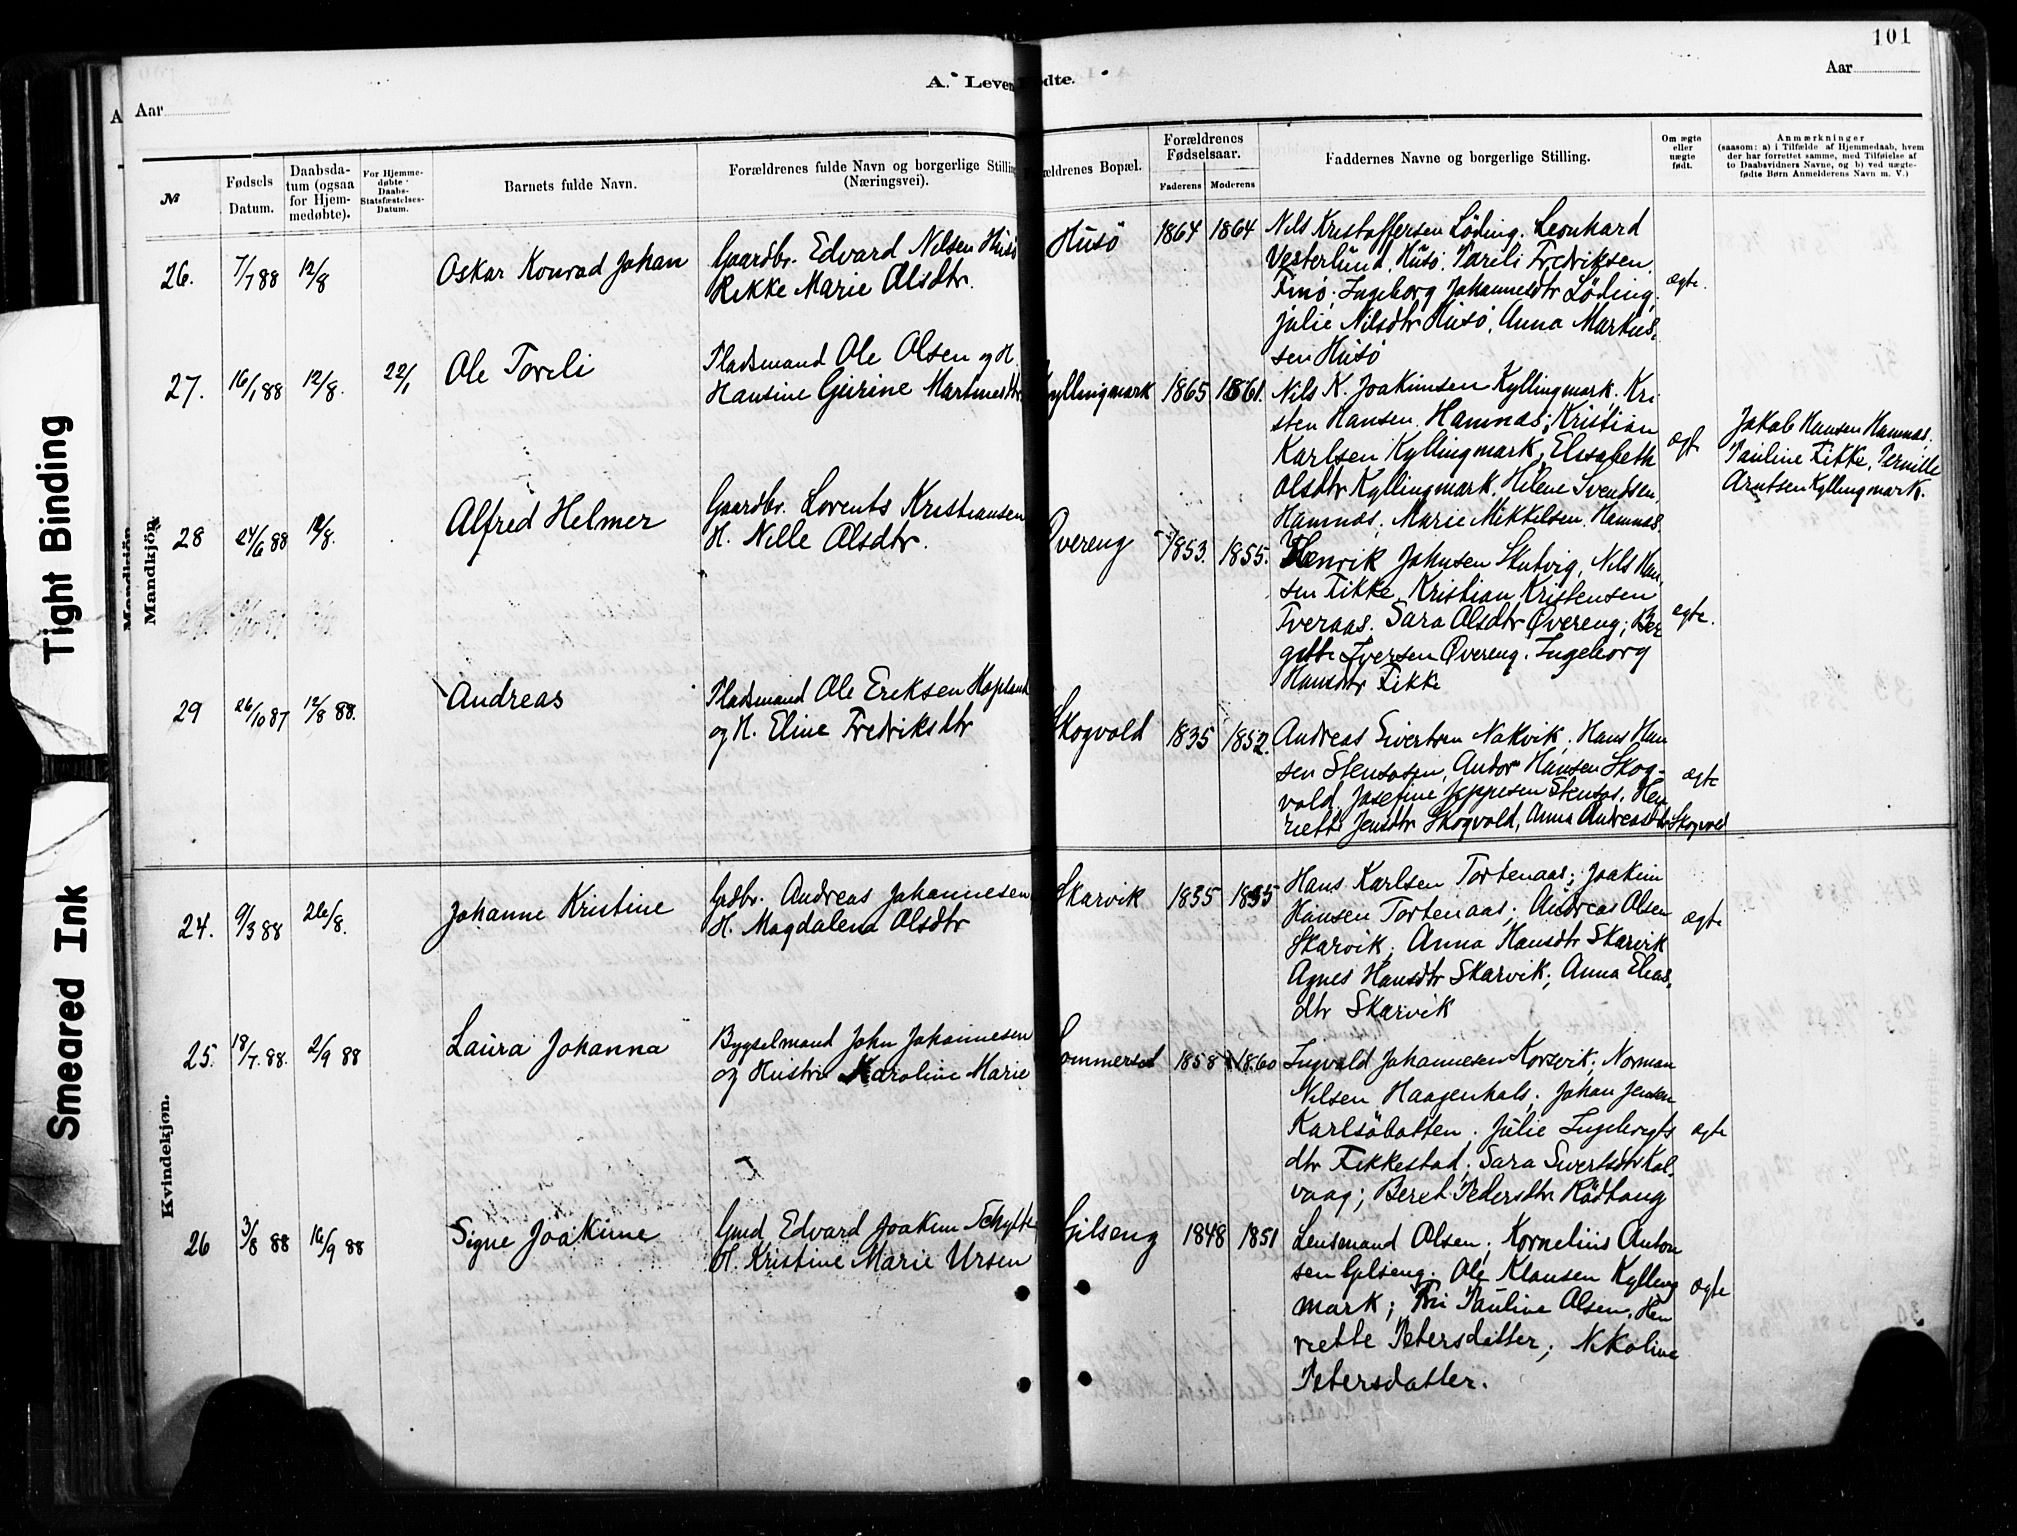 101
A. Levendefødte.
Aar
Aar
Tight Binding
Smeared Ink
Mandkjön.
Kvindekjøn.
№
Fødsels Datum.
Daabsdatum (ogsaa for Hjemmedøbte).
For Hjemmedøbte Daabs-Statsfæstelses-Datum.
Barnets fulde Navn.
Forældrenes fulde Navn og borgerlige Stilling (Næringsvei).
Forældrenes Bopæl.
Forældrenes Fødselsaar.
Faderens
Moderens
Faddernes Navne og borgerlige Stilling.
Om ægte eller uægte født.
Anmærkninger
(saasom: a) i Tilfælde af Hjemmedaab, hvem
der har forrettet samme, med Tilføielse af
to Daabsvidners Navne, og b) ved uægte-
fødte Børn Anmelderens Navn m. V.)
26. 7/7 88 12/8 Oskar Konrad Johan
Gaardbr. Edvard Nilsen Husö
Rikke Marie Olsdtr.
Husö 1864 1864
Nils Kristoffersen Löding. Leonhard
Vesterlund, Husö. Tarili Fredriksen
Finö; Ingeborg Johannesdtr Löding,
Julie Nilsdtr Husö, Anna Markus
sen Husö
ægte.
27. 16/1 88 12/8. 22/1 Ole Torili
Pladsmand Ole Olsen og H.
Hansine Gurine Martinesdtr
Kyllingmark 1865 1861.
Nils K. Joakimsen Kyllingmark. Kri
sten Hansen. Hamnas; Kristian
Karlsen Kyllingmark, Elisabeth
Olsdtr Kyllingmark. Helene Svendsen,
Hamnas, Marie Mikkelsen, Hamnas.
ægt
Jakob Hansen Hamnas.
Pauline Fikke, Pernille
Arntsen Kyllingmark.
28 24/6 88 12/8. Alfred Helmer
Gaardbr. Lorents Kristiansen
H. Nille Olsdtr.
Övereng 1853. 1855.
Henrik Johnsen Skutvig, Nils Han
sen Fikke, Kristian Kristensen
Tveraas. Sara Olsdtr Övereng; Ber
gitte Iversen Övereng. Ingeborg
Hansdtr Fikke
ægte.
29 26/10 87 12/8 88. Andreas
Pladsmand Ole Eriksen Hopland
og H. Eline Fredriksdtr
Skogvold 1835 1852.
Andreas Sivertsen Nakvik, Hans Han
sen Stensosen, Andor Hansen Skog-
vold, Josefine Jeppesen Stensos, Hen
riette Jensdtr Skogvold, Anna Andreasdtr Skogvold
ægte
24. 9/3 88 26/8. Johanne Kristine
Grdbr. Andreas Johannesen
H. Magdalena Olsdtr
Skarvik 1835 1835
Hans Karlsen Tortenaas; Joakim
Hansen Tortenaas; Andreas Olsen
Skarvik; Anna Hansdtr Skarvik
Agnes Hansdtr Skarvik; Anna Elias
dtr Skarvik
ægte
25. 18/7. 88. 2/9 88 Laura Johanna
Bygselmand John Johannesen
og Hustru Karoline Marie
Sommerset 1858 1860
Ingvald Johannesen Korsvik; Norman
Nilsen Haagenhals; Johan Jensen
Karlsöbotten. Julie Ingebrigts
dtr Fikkestad; Sara Sivertsdtr Kal
vaag; Beret Pedersdtr Rödtang
ægte
26 3/8 88 16/9 88 Signe Joakime
Gmd Edvard Joakim Schytte
H. Kristine Marie Ursen
Gilseng 1848 1851
Lensmand Olsen; Kornelius Anton
sen Gilseng; Ole Klausen Kylling
mark; Fru Pauline Olsen, Hen
riette Petersdatter; Nikoline
Petersdatter.
ægte